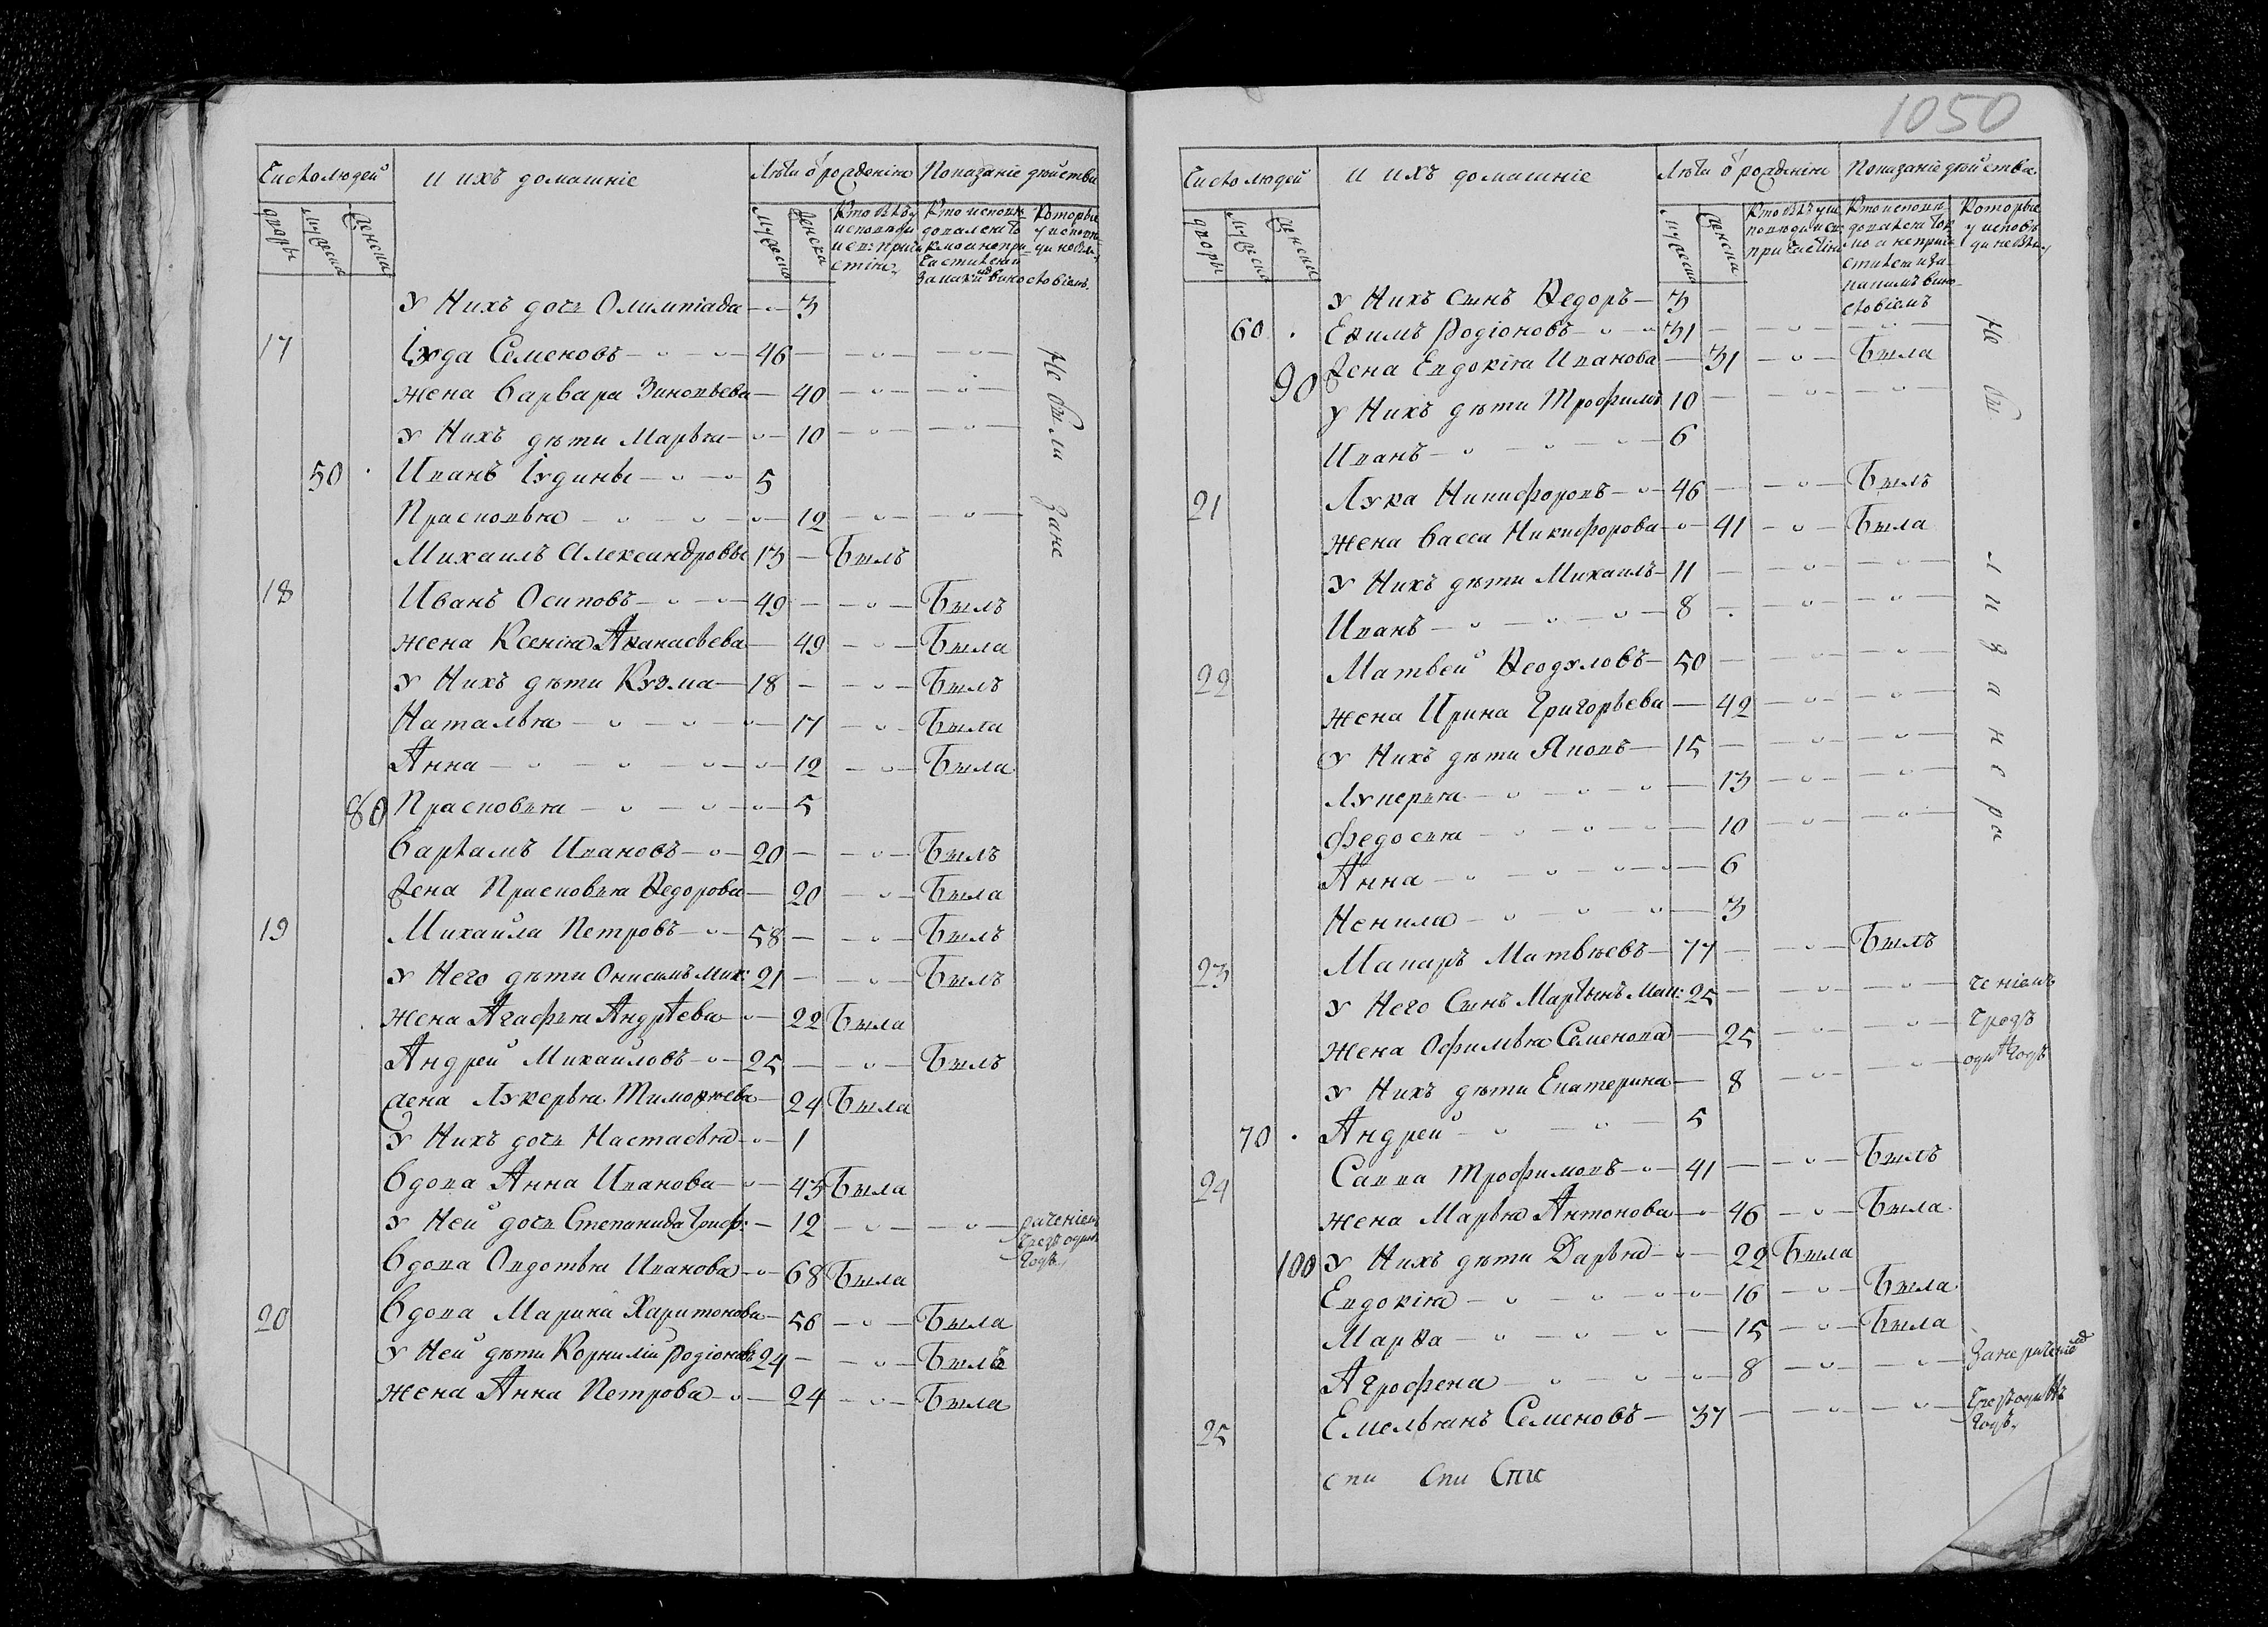 1050
Число людей и ихъ домашніе Лѣта ѿ рожденія Показаніе дѣйства
дворы мужеска женска мужеска женска
У Нихъ дочь Олимпіада 3
17 Іуда Семеновъ 46
жена Варвара Зиновьева 40
У Нихъ дѣти Марья 10
50 Иванъ Іудины 5
Прасковья 12
Михаилъ Александровъ 13 Былъ
18 Иванъ Осиповъ 49 Былъ
жена Ксенія Аѳанасьева 49 Была
У Нихъ дѣти Кузма 18 Былъ
Наталья 17 Была
Анна 12 Была
80 Прасковья 5
Варламъ Ивановъ 20 Былъ
Жена Прасковья Ѳедорова 20 Была
19 Михаила Петровъ 58 Былъ
У Него дѣти Онисимъ Мих: 21 Былъ
жена Агафья Андреева 22 Была
Андрей Михайловъ 25 Былъ
жена Лукерья Тимоѳѣева 24 Была
У Нихъ дочь Настасья 1
Вдова Анна Иванова 43 Была
У Ней дочь Степанида 12 раченіемъ
чрезъ одинъ
годъ
Вдова Овдотья Иванова 68 Была
20 Вдова Марина Харитонова 56 Была
У Ней дѣти Корнилій Родіоновъ 24 Былъ
жена Анна Петрова 24 Была
Не были зане
Число людей и ихъ домашніе Лѣта ѿ рожденія Показаніе дѣйства
дворы мужеска женска мужеска женска
У Нихъ Сынъ Ѳедоръ 3
60 Еѳимъ Родіоновъ 31
90 Жена Евдокія Иванова 31 Была
У Нихъ дѣти Трофимъ 10
Иванъ 6
21 Лука Никифоровъ 46 Былъ
жена Васса Никифорова 41 Была
У Нихъ дѣти Михаилъ 11
Иванъ 8
22 Матвей Ѳеодуловъ 50
жена Ирина Григорьева 42
У Нихъ дѣти Яковъ 15
Лукерья 13
Федосья 10
Анна 6
Ненила 3
23 Макаръ Матвѣевъ 77 Былъ
У Него Сынъ Мартынъ Мак: 25 ченіемъ
жена Офимья Семенова 25 чрезъ
У Нихъ дѣти Екатерина 8 одинъ годъ
70 Андрей 5
24 Савва Трофимовъ 41 Былъ
жена Марья Антонова 46 Была
100 У Нихъ дѣти Дарья 22 Была
Евдокія 16 Была
Марѳа 15 Была
Агрофена 8
25 Емельянъ Семеновъ 37 чрезъ одинъ
годъ
Не были зане ра
спи Спи Спис